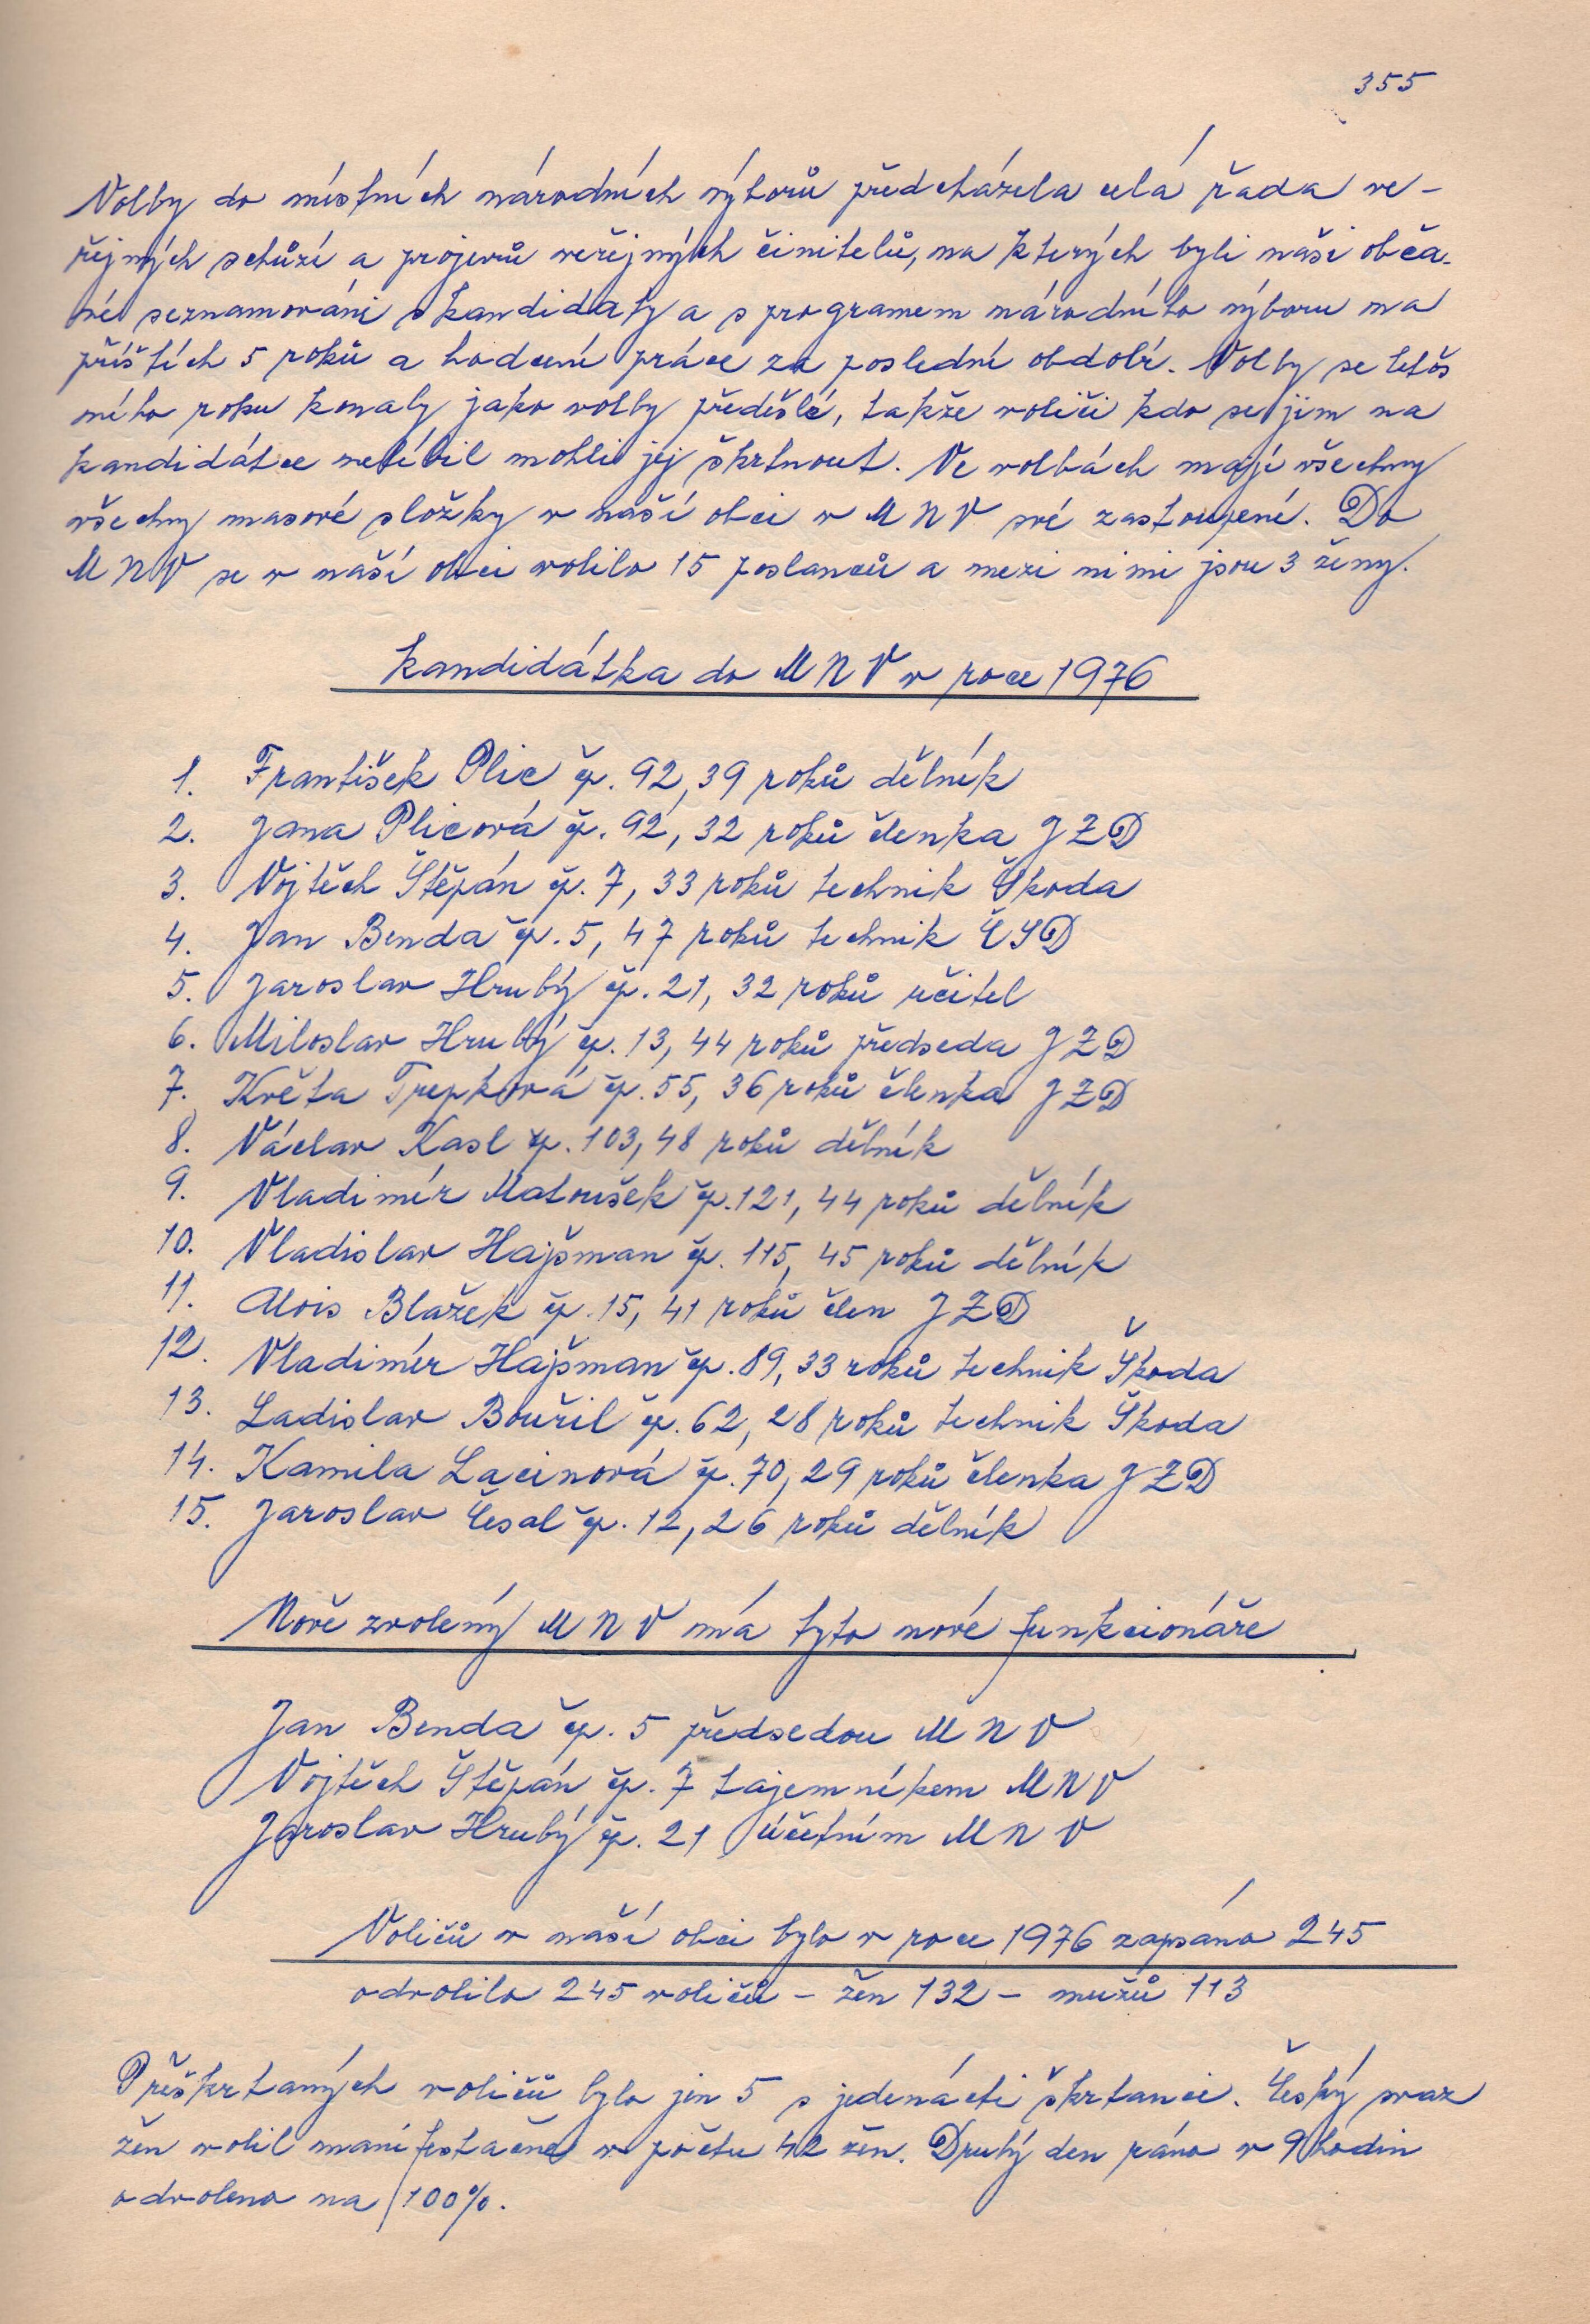 355
Volby do místních národních výborů předcházela celá řada ve-
řejných schůzí a projevů veřejných činitelů, na kterých byli naši obča-
né seznamováni s kandidáty a s programem národního výboru na
příštích 5 roků a hodcení práce za poslední období. Volby se letoš
ního roku konaly jako volby předešlé, takže voliči kdo se jim na
kandidátce nelíbil mohli jej škrtnout. Ve volbách mají všechny
všechny masové složky v naší obci v MNV své zastoupení. Do
MNV se v naší obci volilo 15 poslanců a mezi nimi jsou 3 ženy.
Kandidátka do MNV v roce 1976
1. František Plic čp. 92, 39 roků dělník
2. Jana Plicová čp. 92, 32 roků členka JZD
3. Vojtěch Štěpán čp. 7, 33 roků technik Škoda
4. Jan Benda čp. 5, 47 roků technik ČSD
5. Jaroslav Hrubý čp. 21, 32 roků učitel
6. Miloslav Hrubý čp. 13, 44 roků předseda JZD
7. Květa Trepková čp. 55, 36 roků členka JZD
8. Václav Kasl čp. 103, 48 roků dělník
9. Vladimír Matoušek čp. 121, 44 roků dělník
10. Vladislav Hajšman čp. 115, 45 roků dělník
11. Alois Blažek čp. 15, 41 roků člen JZD
12. Vladimír Hajšman čp. 89, 33 roků technik Škoda
13. Ladislav Bouřil čp. 62, 28 roků technik Škoda
14. Kamila Lacinová čp. 70, 29 roků členka JZD
15. Jaroslav Česal čp. 12, 26 roků dělník
Nově zvolený MNV má tyto nové funkcionáře
Jan Benda čp. 5 předsedou MNV
Vojtěch Štěpán čp. 7 tajemníkem MNV
Jaroslav Hrubý čp. 21 účetním MNV
Voličů v naší obci bylo v roce 1976 zapsáno 245
odvolilo 245 voličů - žen 132 - mužů 113
Přeškrtaných voličů bylo jen 5 s jedenácti škrtanci. Český svaz
žen volil manifestačně v počtu 42 žen. Druhý den ráno v 9 hodin
odvoleno na 100%.